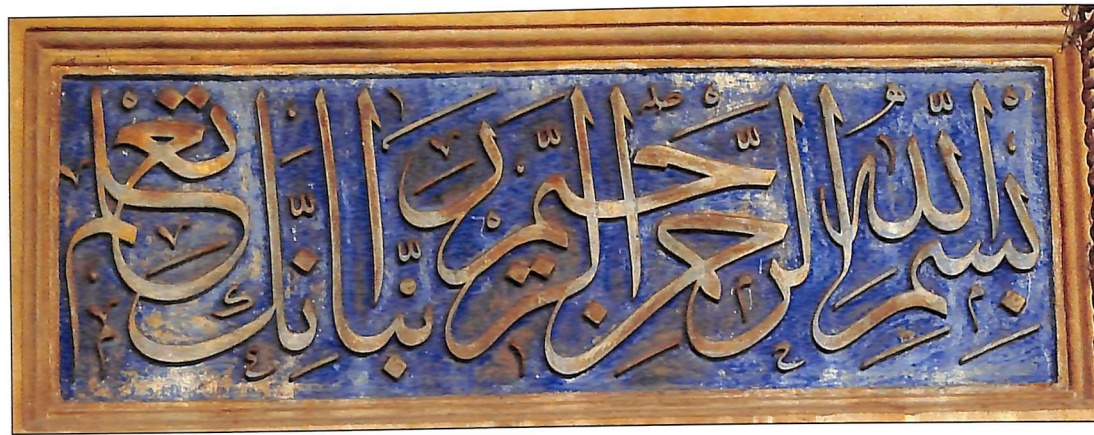 بِسْمِ اللّٰهِ الرَّحْمٰنِ الرَّحِيمِ رَبَّنَا اِنَّكَ تَعْلَمُ